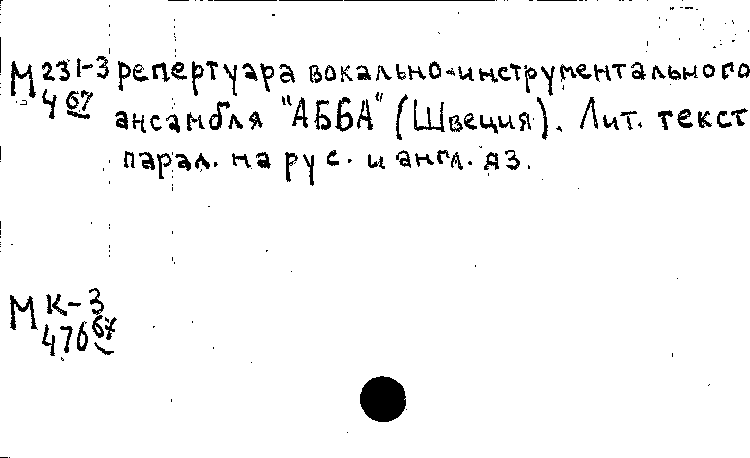 М 231-3 репертуара вокально-инструментального
4 67 ансамбля "АББА" (Швеция). Лит. текст
парал. на рус. и англ. яз.
М К-3
476 67